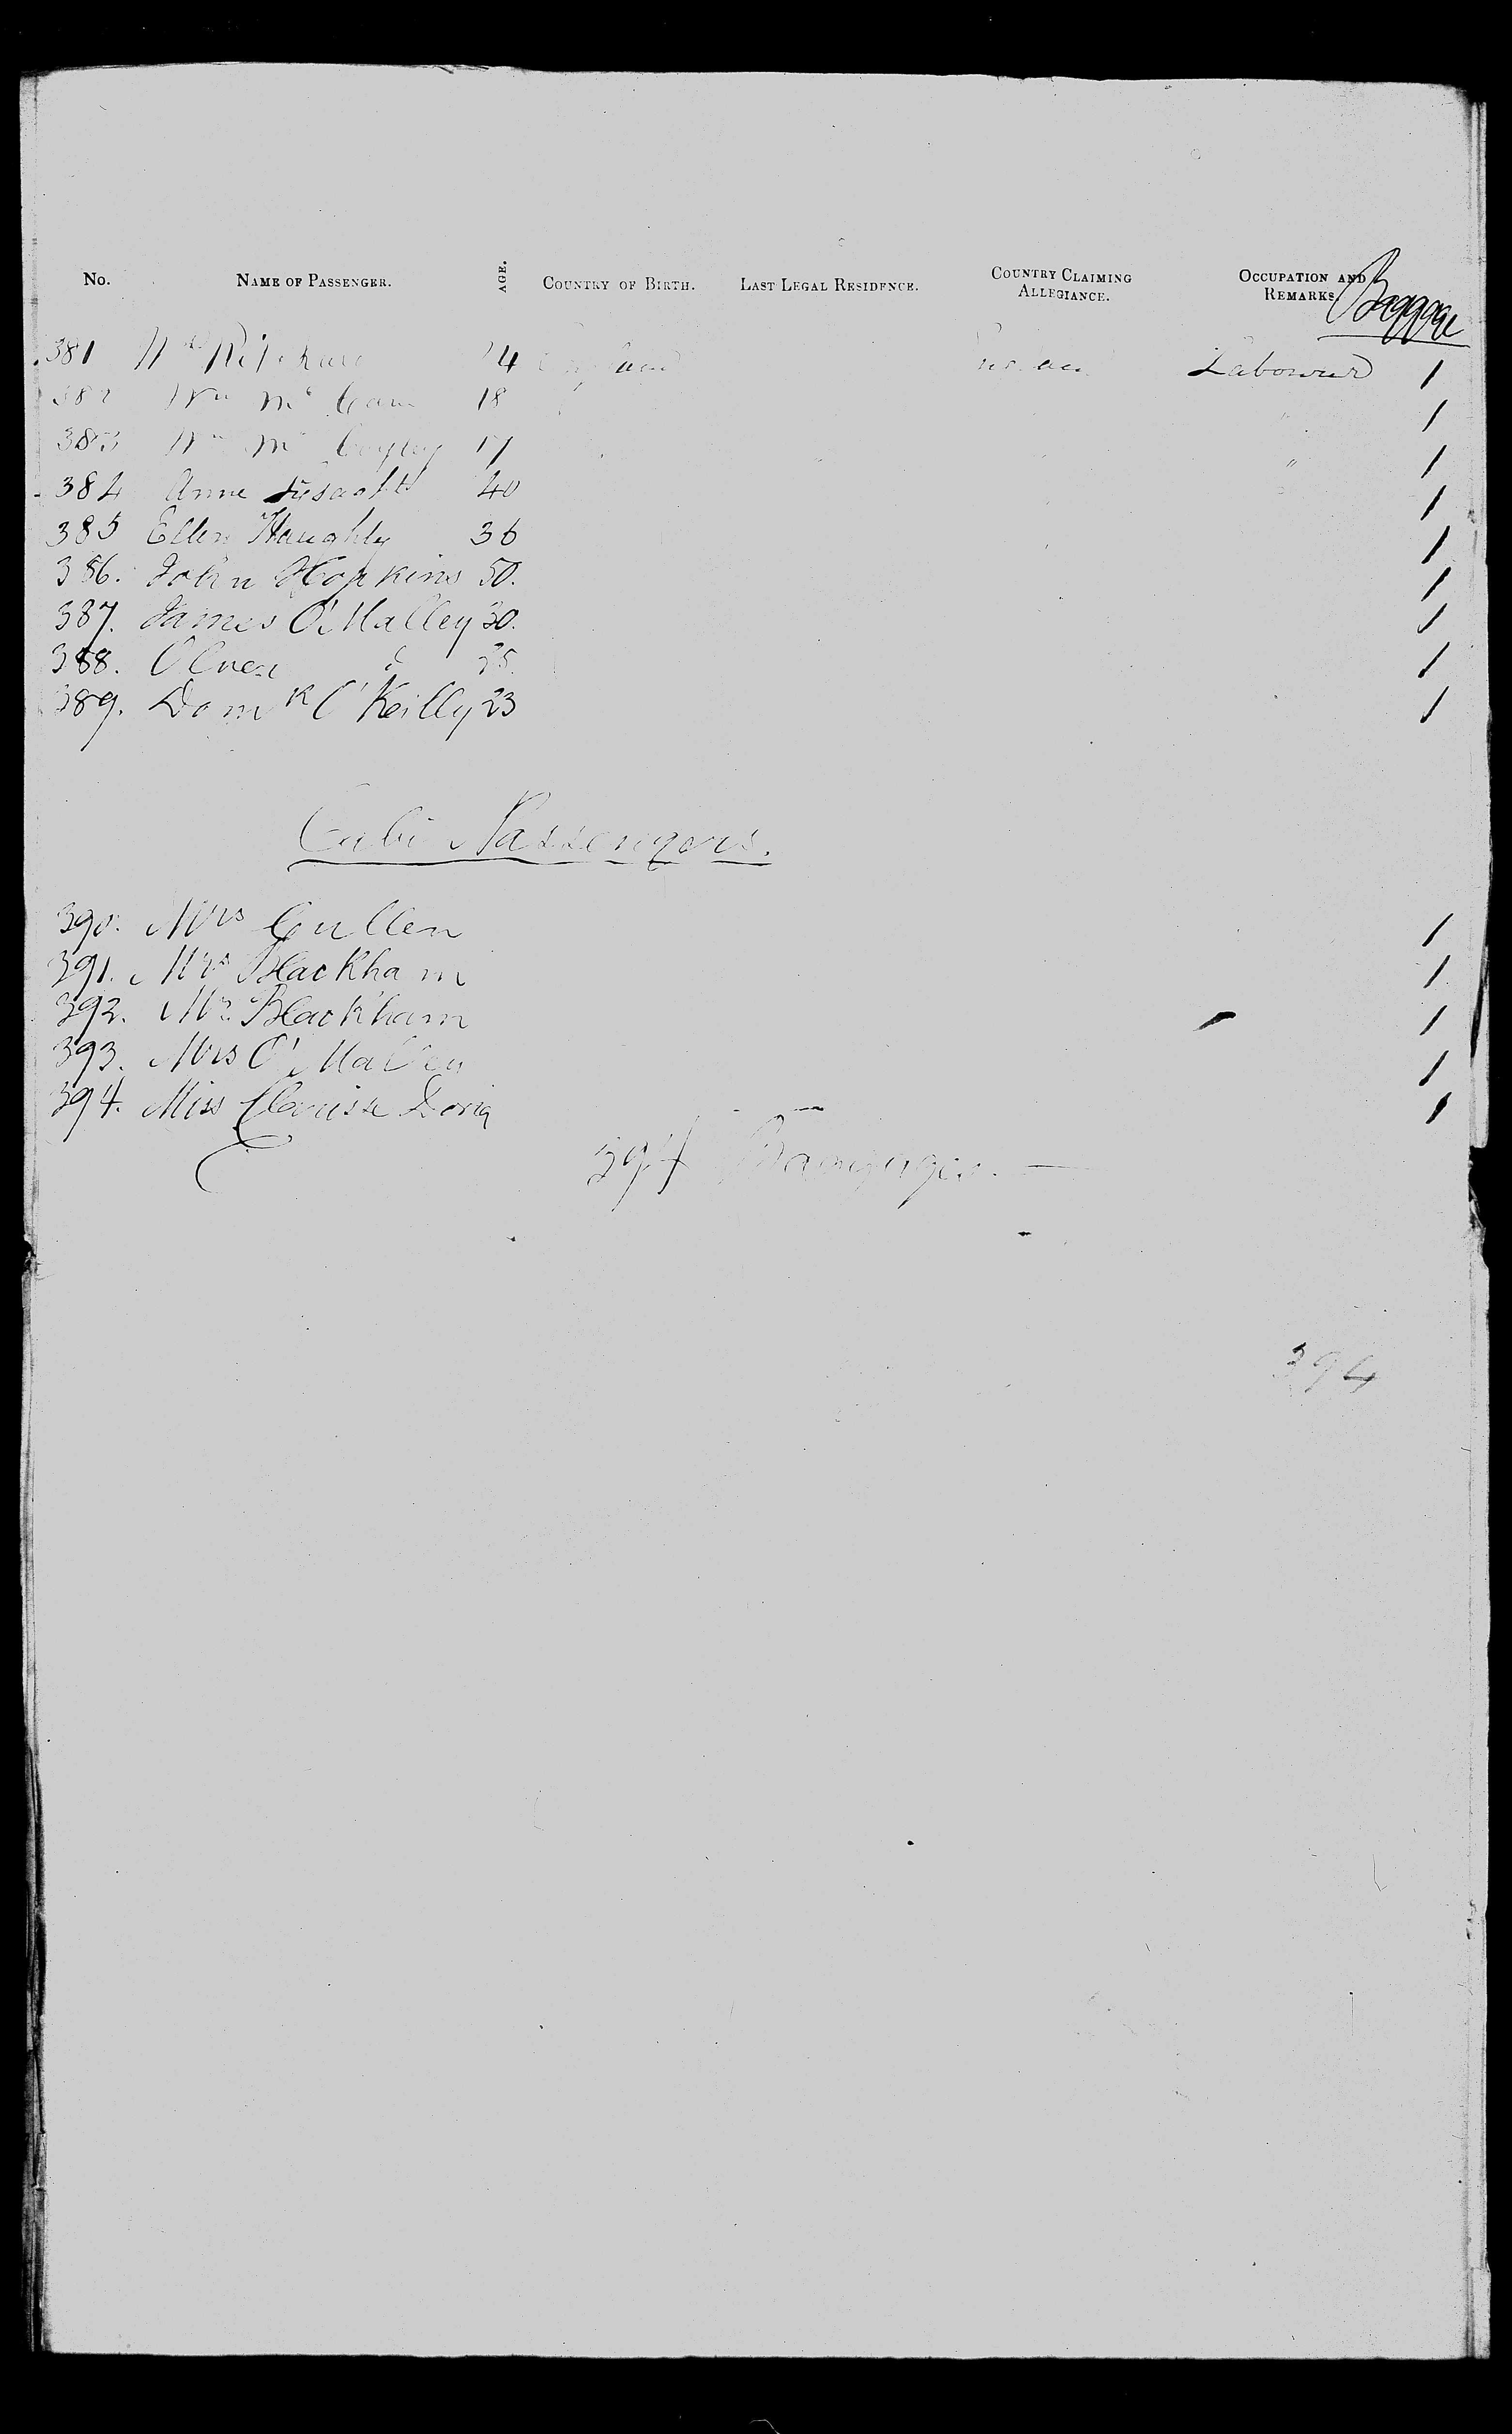 No. NAME OF PASSENGER. AGE. COUNTRY OF BIRTH. LAST LEGAL RESIDENCE. COUNTRY CLAIMING ALLEGIANCE. OCCUPATION AND REMARKS. Baggage
381 England Labourer 1
382 Wm Mc 18 " 1
383 Wm Mc 17 " 1
384 Anne 40 1
385 Ellen Haughly 36 1
386. John Hopkins 50. 1
387. James O'Malley 30. 1
388. Oliver do 1
389. Domk O'Keilly 23 1
Passengers.
390. Mrs Cullen 1
391. Mrs Blackham 1
392. Mr. Blackham 1
393. Mrs O'Malley 1
394. Miss Clarisse Doria 1
394 Baggages. —
394